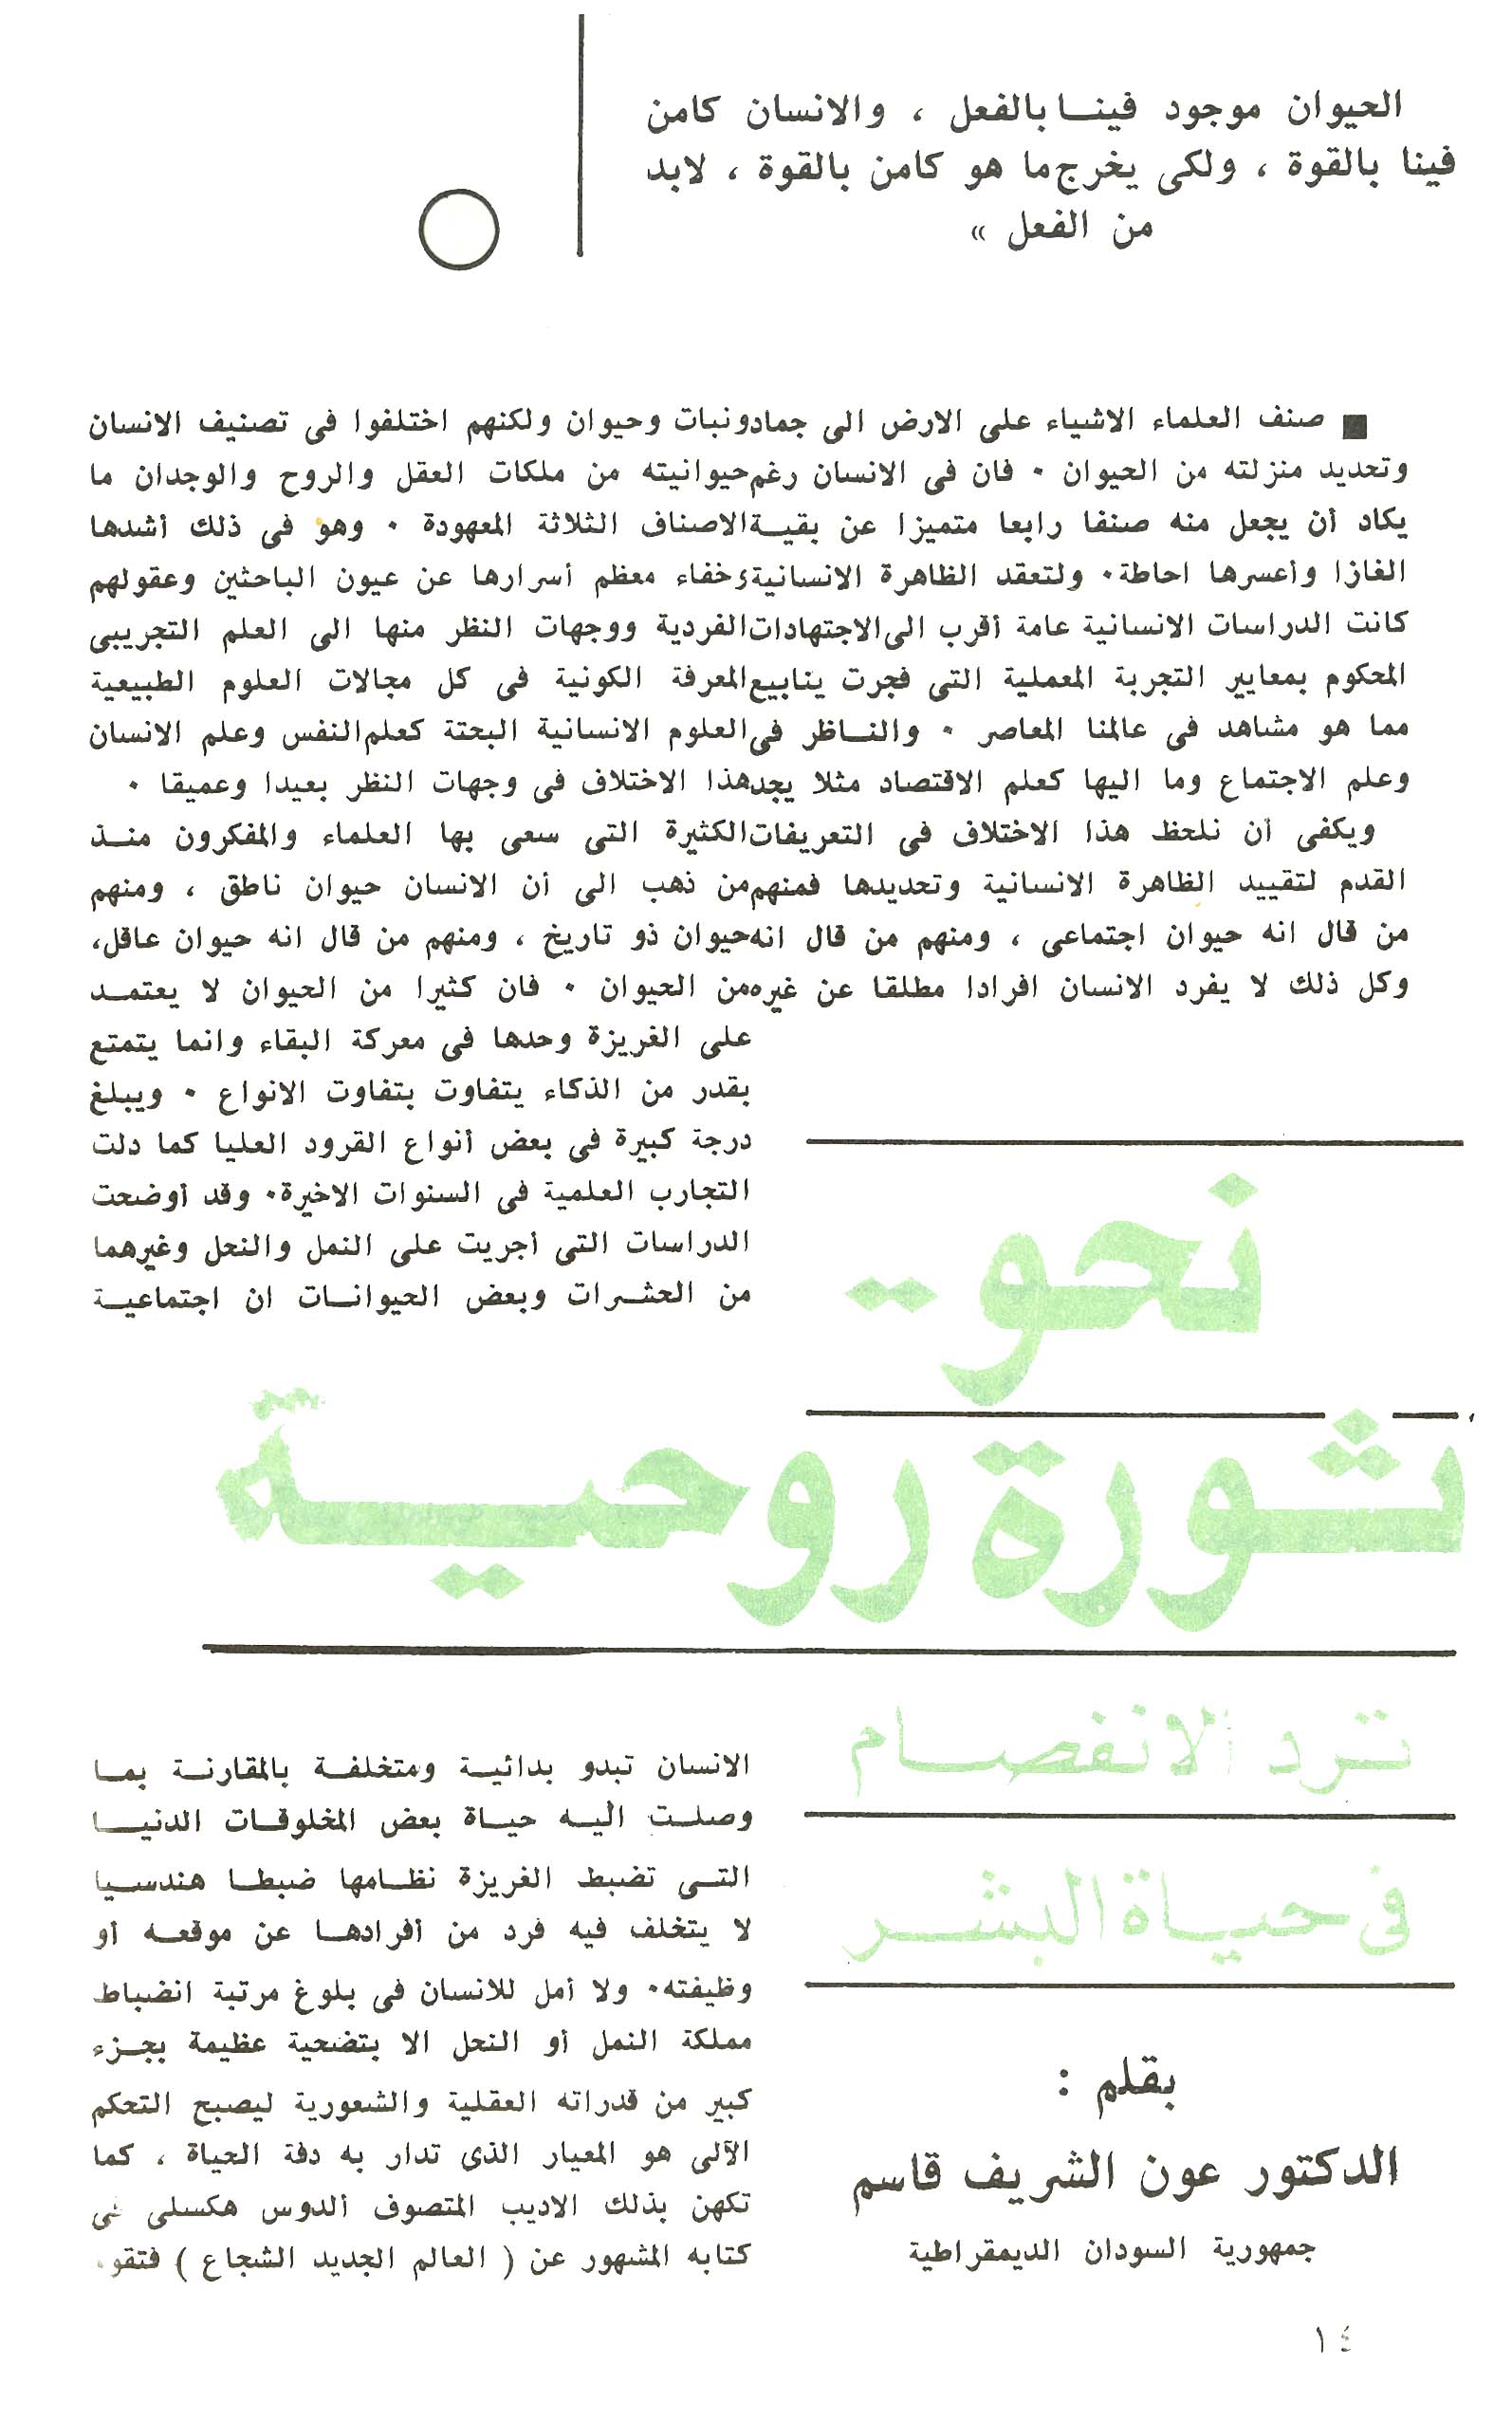 الحيوان موجود فينا بالفعل ، والانسان كامن
فينا بالقوة ، ولكى يخرج ما هو كامن بالقوة ، لابد
من الفعل »
■ صنف العلماء الاشياء على الارض الى جماد ونبات وحيوان ولكنهم اختلفوا فى تصنيف الانسان
وتحديد منزلته من الحيوان ٠ فان فى الانسان رغم حيوانيته من ملكات العقل والروح والوجدان ما
يكاد أن يجعل منه صنفا رابعا متميزا عن بقية الاصناف الثلاثة المعهودة ٠ وهو فى ذلك أشدها
الغازا وأعسرها احاطة٠ ولتعقد الظاهرة الانسانية وخفاء معظم أسرارها عن عيون الباحثين وعقولهم
كانت الدراسات الانسانية عامة أقرب الى الاجتهادات الفردية ووجهات النظر منها الى العلم التجريبى
المحكوم بمعايير التجربة المعملية التى فجرت ينابيع المعرفة الكونية فى كل مجالات العلوم الطبيعية
مما هو مشاهد فى عالمنا المعاصر ٠ والناظر فى العلوم الانسانية البحتة كعلم النفس وعلم الانسان
وعلم الاجتماع وما اليها كعلم الاقتصاد مثلا يجد هذا الاختلاف فى وجهات النظر بعيدا وعميقا ٠
ويكفى أن نلحظ هذا الاختلاف فى التعريفات الكثيرة التى سعى بها العلماء والمفكرون منذ
القدم لتقييد الظاهرة الانسانية وتحديدها فمنهم من ذهب الى أن الانسان حيوان ناطق ، ومنهم
من قال انه حيوان اجتماعى ، ومنهم من قال انه حيوان ذو تاريخ ، ومنهم من قال انه حيوان عاقل،
وكل ذلك لا يفرد الانسان افرادا مطلقا عن غيره من الحيوان ٠ فان كثيرا من الحيوان لا يعتمد
على الغريزة وحدها فى معركة البقاء وانما يتمتع
بقدر من الذكاء يتفاوت بتفاوت الانواع ٠ ويبلغ
درجة كبيرة فى بعض أنواع القرود العليا كما دلت
التجارب العلمية فى السنوات الاخيرة٠ وقد أوضحت
الدراسات التى أجريت على النمل والنحل وغيرهما
من الحشرات وبعض الحيوانات ان اجتماعية
نحو ..
ثورة روحية
ترد الانفصام
فى حياة البشر
بقلم :
الدكتور عون الشريف قاسم
جمهورية السودان الديمقراطية
الانسان تبدو بدائية ومتخلفة بالمقارنة بما
وصلت اليه حياة بعض المخلوقات الدنيا
التى تضبط الغريزة نظامها ضبطا هندسيا
لا يتخلف فيه فرد من أفرادها عن موقعه أو
وظيفته٠ ولا أمل للانسان فى بلوغ مرتبة انضباط
مملكة النمل أو النحل الا بتضحية عظيمة بجزء
كبير من قدراته العقلية والشعورية ليصبح التحكم
الآلى هو المعيار الذى تدار به دفة الحياة ، كما
تكهن بذلك الاديب المتصوف ألدوس هكسلى فى
كتابه المشهور عن ( العالم الجديد الشجاع )
١٤